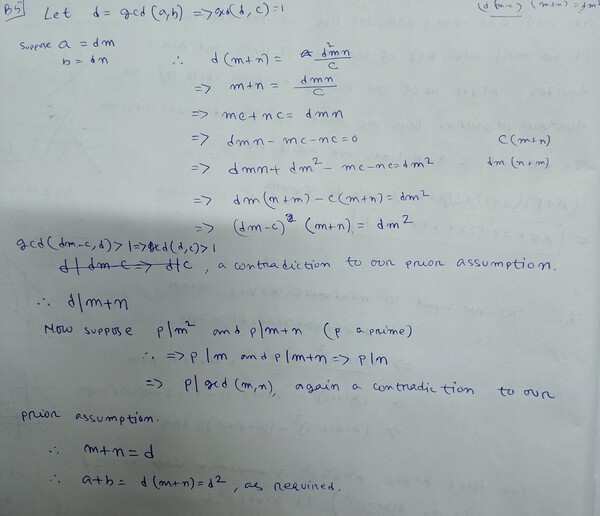 B5] Let d = gcd(a,b) => gcd(d,c)=1
Suppose a = dm
b = dn
∴ d(m+n) = d²mn/c
=> m+n = dmn/c
=> mc+nc = dmn
=> dmn - mc - nc = 0
c(m+n)
=> dmn + dm² - mc - nc = dm²
dm(n+m)
=> dm(n+m) - c(m+n) = dm²
=> (dm-c) (m+n) = dm²
gcd(dm-c,d) > 1 => gcd(d,c) > 1
d | dm-c => d|c, a contradiction to our prior assumption.
∴ d | m+n
Now suppose p|m² and p|m+n (p a prime)
∴ => p|m and p|m+n => p|n
=> p | gcd(m,n), again a contradiction to our
prior assumption.
∴ m+n = d
∴ a+b = d(m+n) = d², as required.